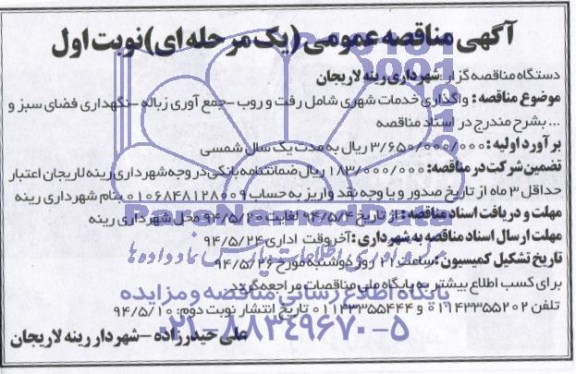 آگهی مناقصه عمومی (یک مرحله ای) نوبت اول
دستگاه مناقصه گزار: شهرداری رینه لاریجان
موضوع مناقصه: واگذاری خدمات شهری شامل رفت و روب -جمع آوری زباله -نگهداری فضای سبز و
... بشرح مندرج در اسناد مناقصه
برآورد اولیه: ۳/۶۵۰/۰۰۰/۰۰۰ ریال به مدت یک سال شمسی
تضمین شرکت در مناقصه: ۱۸۳/۰۰۰/۰۰۰ ریال ضمانتنامه بانکی در وجه شهرداری رینه لاریجان اعتبار
حداقل ۳ ماه از تاریخ صدور و یا وجه نقد واریز به حساب ۰۱۰۶۸۴۸۱۲۸۰۰۹ بنام شهرداری رینه
مهلت و دریافت اسناد مناقصه: از تاریخ ۹۴/۵/۴ لغایت ۹۴/۵/۲۰ محل شهرداری رینه
مهلت ارسال اسناد مناقصه به شهرداری: آخر وقت اداری ۹۴/۵/۲۴
تاریخ تشکیل کمیسیون: ساعت ۲۱ روز دوشنبه مورخ ۹۴/۵/۲۶
برای کسب اطلاع بیشتر به پایگاه ملی مناقصات مراجعه گردد
پایگاه اطلاع رسانی مناقصه و مزایده
تلفن ۰۱۱۴۳۳۵۵۲۰۲ و ۰۱۱۴۳۳۵۵۴۴۴ تاریخ انتشار نوبت دوم: ۹۴/۵/۱۰
۰۲۱-۸۸۳۴۹۶۷۰-۵
علی حیدرزاده -شهردار رینه لاریجان